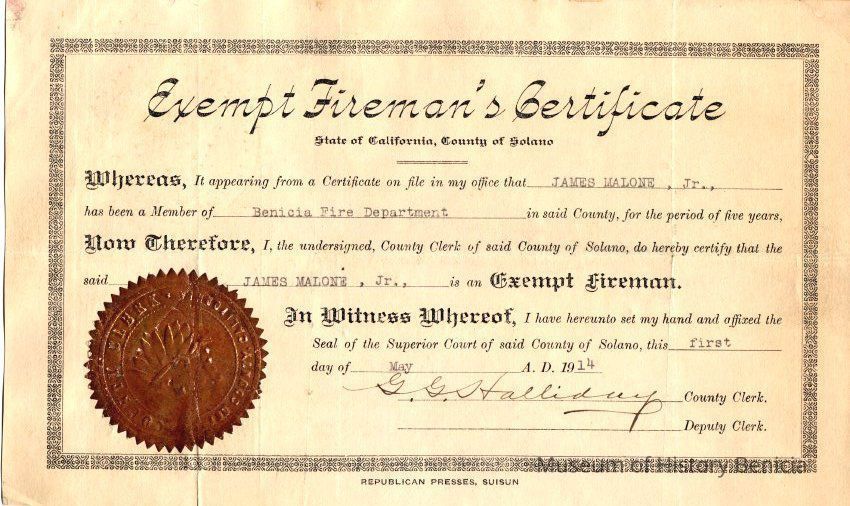 Exempt Fireman's Certificate
State of California, County of Solano
Whereas, It appearing from a Certificate on file in my office that JAMES MALONE , Jr.,
has been a Member of Benicia Fire Department in said County, for the period of five years,
Now Therefore, I, the undersigned, County Clerk of said County of Solano, do hereby certify that the
said JAMES MALONE , Jr., is an Exempt Fireman.
In Witness Whereof, I have hereunto set my hand and affixed the
Seal of the Superior Court of said County of Solano, this first
day of May A. D. 1914
G. G. Halliday County Clerk.
Deputy Clerk.
REPUBLICAN PRESSES, SUISUN
Museum of History Benicia